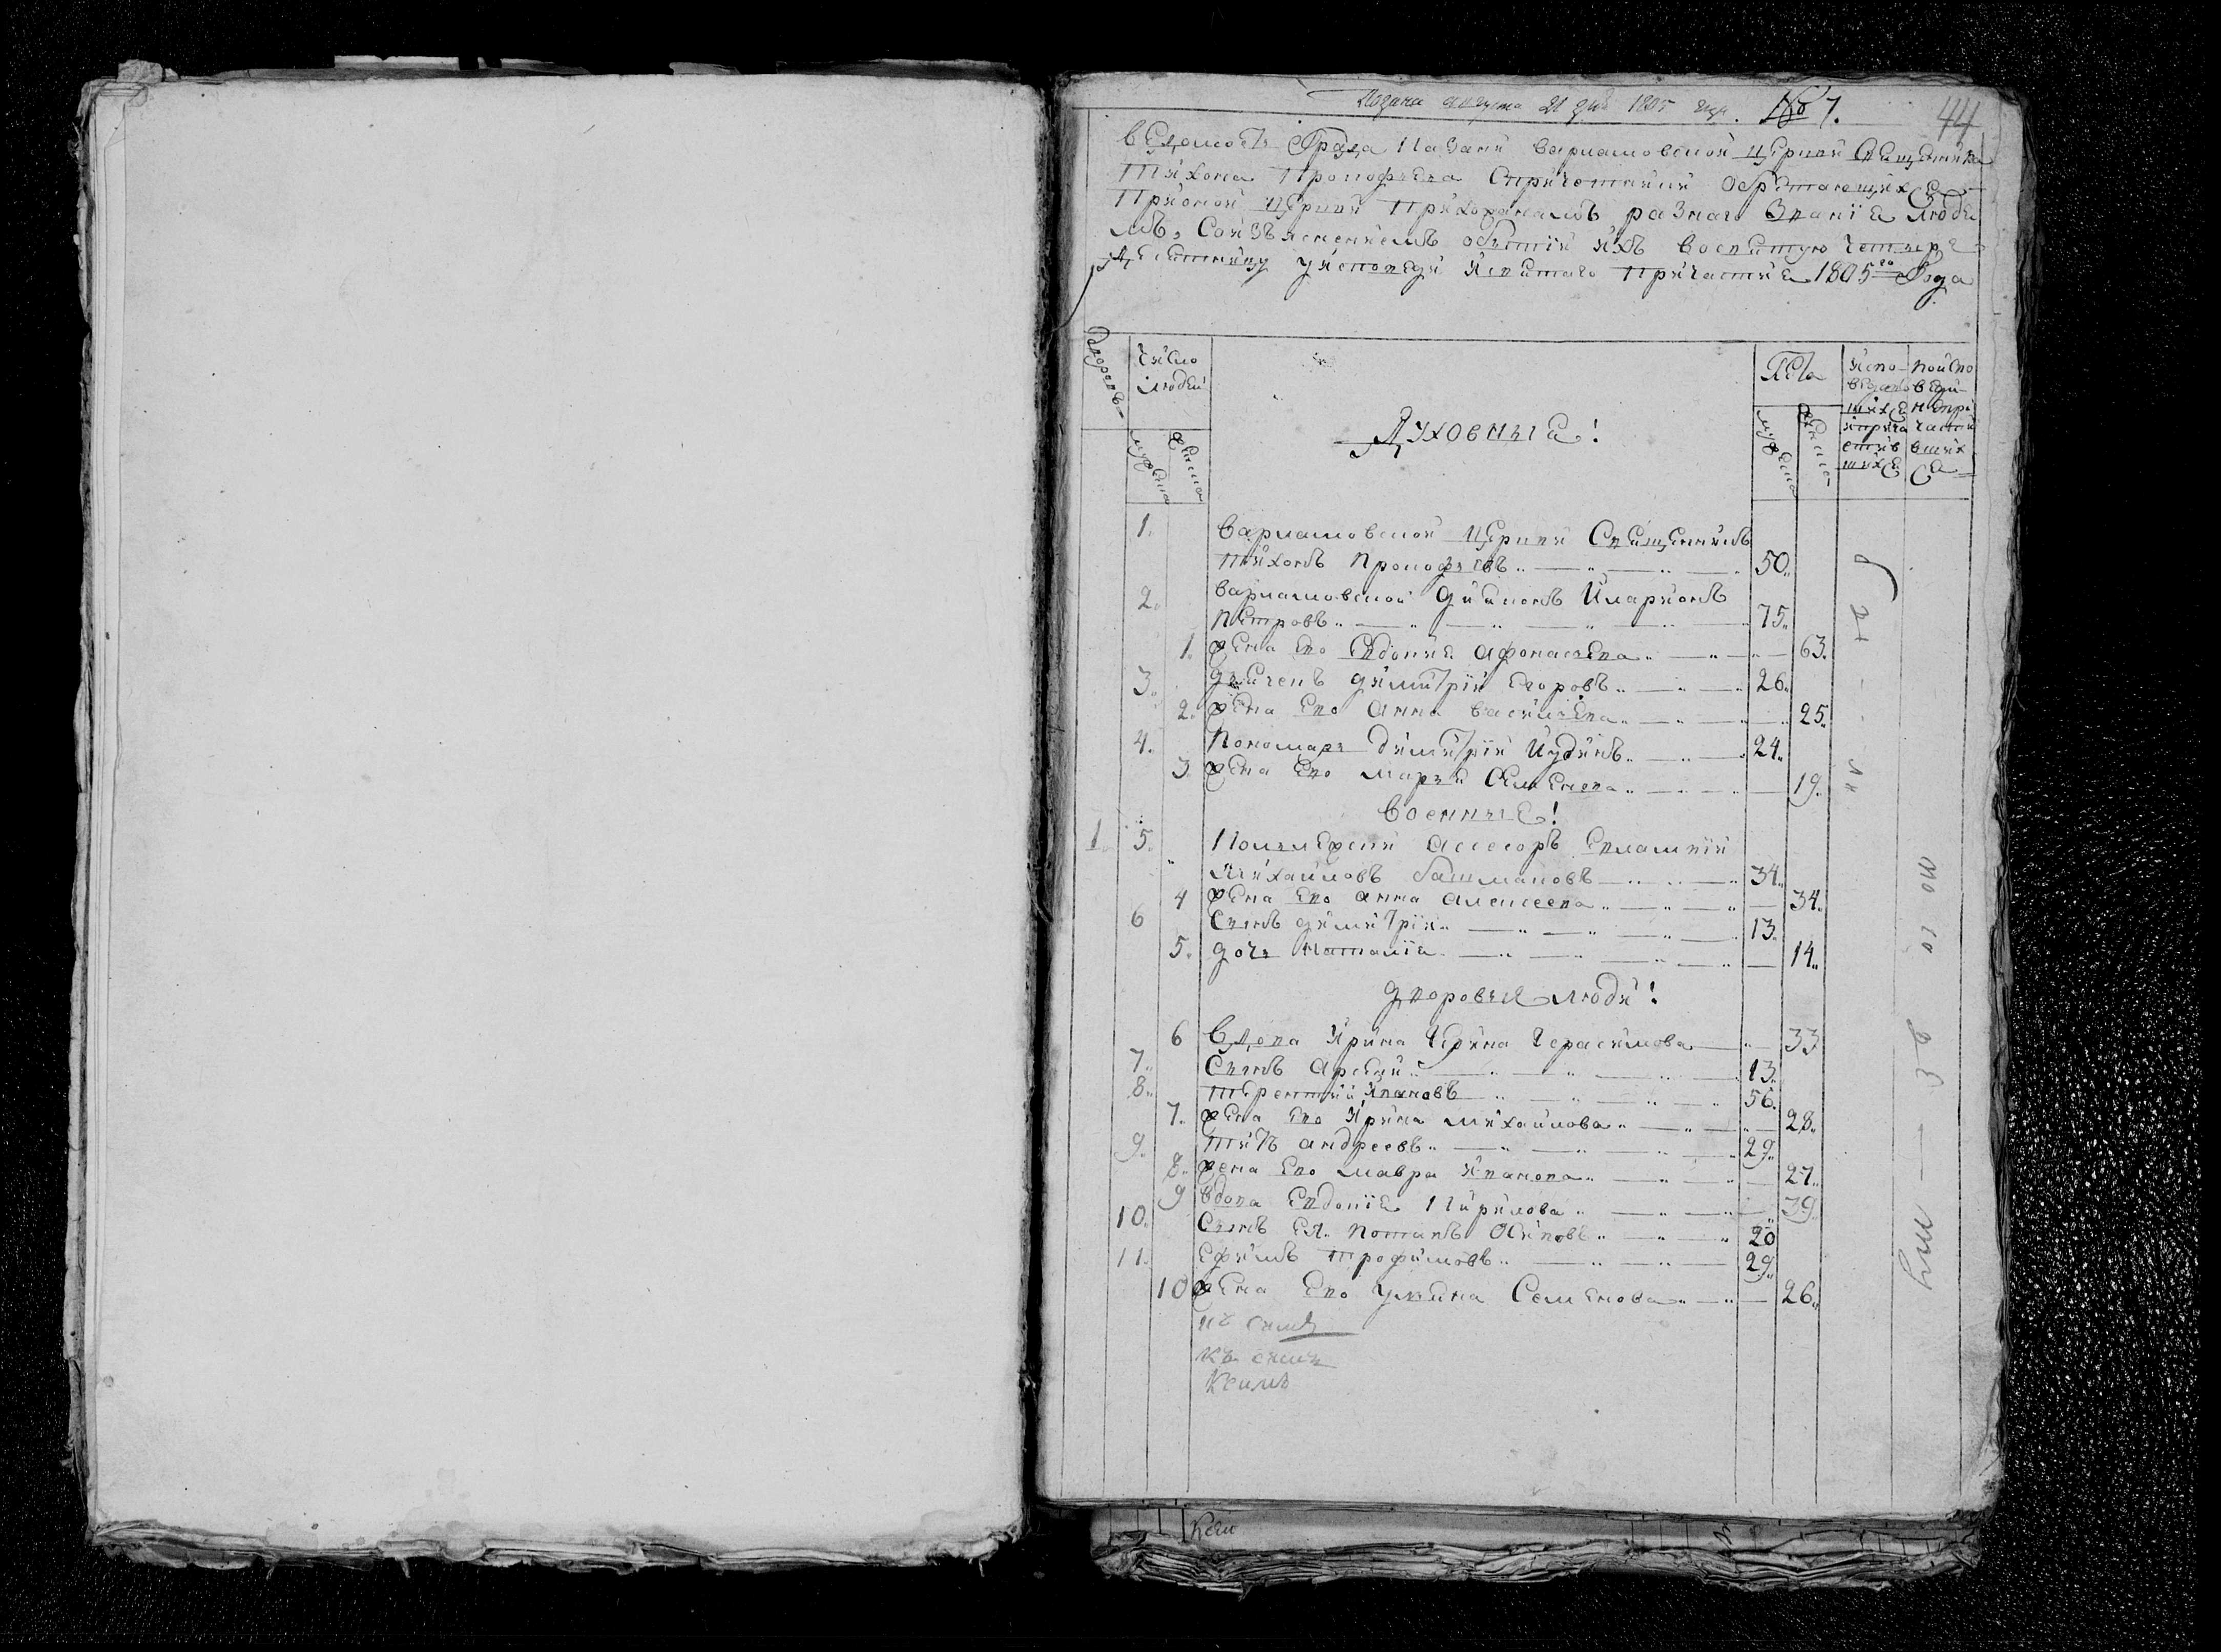 Подана августа 21 дня 1805 года. № 7. 44
Ведомость града Казани варламовской церкви священника
Тихона Прокофьева спричетники обретающихся
прионой церкви прихожанамъ разнаго звания люде
мъ, Соизъяснениемъ бытии ихъ Восвятую четыре
десятницу уисповеди исвятаго причастия 1805го Года
Дворовъ
Число людей
мужеска
женска
Духовныя!
Лета
мужеска
женска
испо-
ведав
шихся
иприча
стив
шихся
поиспо
веди
непри
части
вших
ся
1. варламовской церкви Священникъ
Тихонъ Прокофьевъ 50.
2. варламовской диаконъ Иларионъ
Петровъ 75.
1. жена ево Евдокия афонасьева 63.
3. дьячекъ димитрий егоровъ 26.
2. жена ево Анна васильева 25.
4. Пономарь димитрий Иудинъ 24.
3 жена ево марья Семенова 19.
военныя!
1. 5. Колежский асесоръ Евлампий
Михайловъ башмаковъ 34.
4 жена ево анна алексеева 34.
6 Сынъ димитрий 13.
5. дочь наталия 14.
дворовыя люди!
6 Вдова Ирина Герасимова 33
7. Сынъ 13.
8. Терентий Ивановъ 56.
7. жена ево Ирина михайлова 28.
9. Титъ андреевъ 29.
8. жена ево мавра Иванова 27.
9 вдова Евдокия Кирилова 39.
10. Сынъ ея Потапъ Осиповъ 20
11. Ефимъ трофимовъ 29.
10 жена ево Улиана Семенова 26.